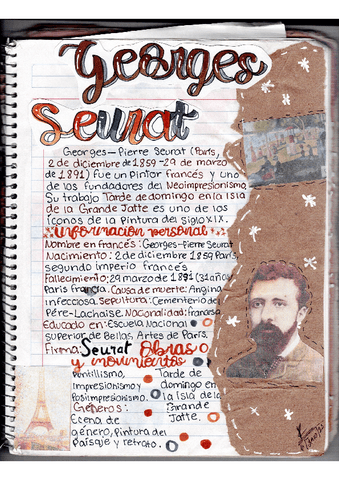 Georges
Seurat
Georges-Pierre Seurat (París,
2 de diciembre de 1859-29 de marzo
de 1891) fue un Pintor francés y uno
de los fundadores del Neoimpresionismo.
Su trabajo Tarde de domingo en la Isla
de la Grande Jatte es uno de los
íconos de la Pintura del Siglo XIX.
Información personal
Nombre en francés: Georges-pierre Seurat
Nacimiento: 2 de diciembre 1859 París,
segundo imperio francés.
Fallecimiento: 29 marzo de 1891 (31años)
París franca. Causa de muerte: Angina
infecciosa. Sepultura: Cementerio de
Père-Lachaise. Nacionalidad: francesa
Educado en: Escuela Nacional
superior de Bellas, Artes de París.
Firma: Seurat Obras
y movimientos
Pontillismo,
Impresionismo y
Posimpresionismo.
Géneros:
Ecena de
género, Pintura del
Paisaje y retrato.
Tarde de
domingo en
la Isla de la
Grande
Jatte.